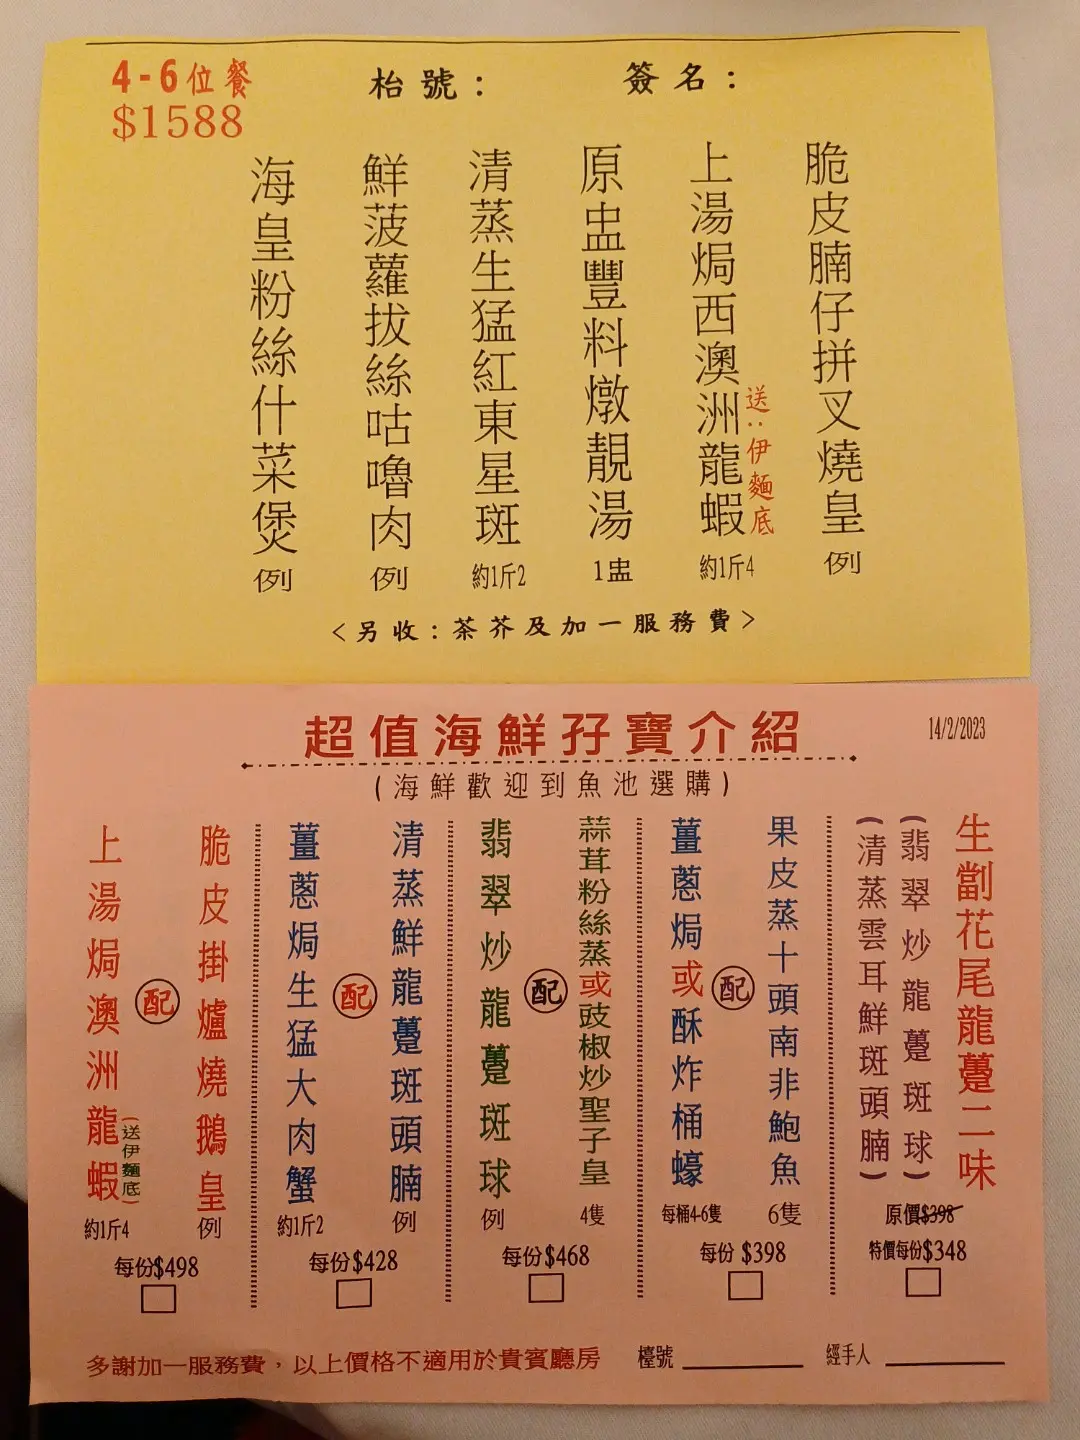 4-6位餐
$1588
枱號：
簽名：
脆皮腩仔拼叉燒皇 例
上湯焗西澳洲龍蝦 約1斤4
送：伊麵底
原盅豐料燉靚湯 1盅
清蒸生猛紅東星斑 約1斤2
鮮菠蘿拔絲咕嚕肉 例
海皇粉絲什菜煲 例
<另收：茶芥及加一服務費>
超值海鮮孖寶介紹
14/2/2023
(海鮮歡迎到魚池選購)
生劏花尾龍躉二味
(翡翠炒龍躉斑球)
(清蒸雲耳鮮斑頭腩)
原價$398
特價每份$348
果皮蒸十頭南非鮑魚 6隻
配
薑蔥焗或酥炸桶蠔 每桶4-6隻
每份 $398
蒜茸粉絲蒸或豉椒炒聖子皇 4隻
配
翡翠炒龍躉斑球 例
每份$468
清蒸鮮龍躉斑頭腩 例
配
薑蔥焗生猛大肉蟹 約1斤2
每份$428
脆皮掛爐燒鵝皇 例
配
上湯焗澳洲龍蝦 約1斤4
(送伊麵底)
每份$498
多謝加一服務費，以上價格不適用於貴賓廳房
檯號
經手人